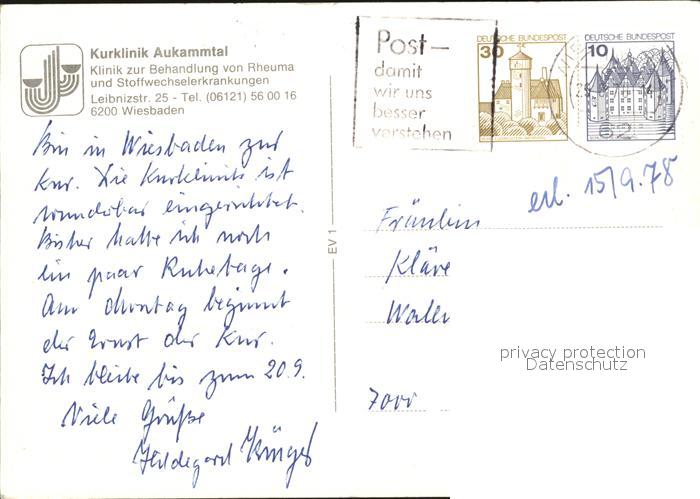 Kurklinik Aukammtal
Klinik zur Behandlung von Rheuma
und Stoffwechselerkrankungen
Leibnizstr. 25 - Tel. (06121) 56 00 16
6200 Wiesbaden
Bin in Wiesbaden zur
Kur. Die Kurklinik ist
wunderbar eingerichtet.
Bisher hatte ich noch
ein paar Ruhetage.
Am Montag beginnt
der Ernst der Kur.
Ich bleibe bis zum 20.9.
Viele Grüße
Hildegard
EV 1
Post –
damit
wir uns
besser
verstehen
DEUTSCHE BUNDESPOST
30
DEUTSCHE BUNDESPOST
10
erl. 15/9.78
Fräulein
Kläre
privacy protection
Datenschutz